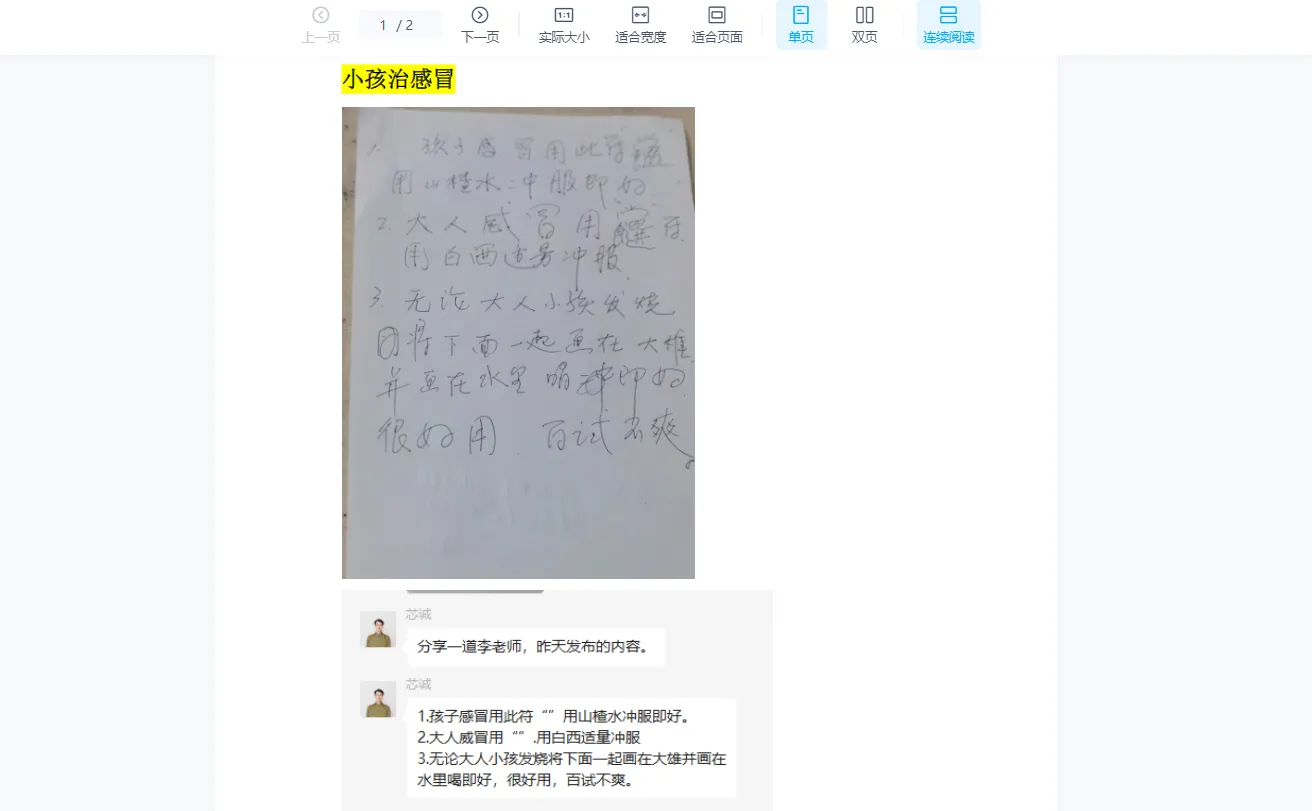 上一页
1 / 2
下一页
1:1
实际大小
适合宽度
适合页面
单页
双页
连续阅读
小孩治感冒
1. 孩子感冒用此符
用山楂水冲服即好
2. 大人感冒用 符.
用白西适量冲服.
3. 无论大人小孩发烧
将下面一起画在大雄
并画在水里喝 即好.
很好用. 百试不爽.
芯诚
分享一道李老师，昨天发布的内容。
芯诚
1.孩子感冒用此符“”用山楂水冲服即好。
2.大人威冒用“”.用白西适量冲服
3.无论大人小孩发烧将下面一起画在大雄并画在
水里喝即好，很好用，百试不爽。